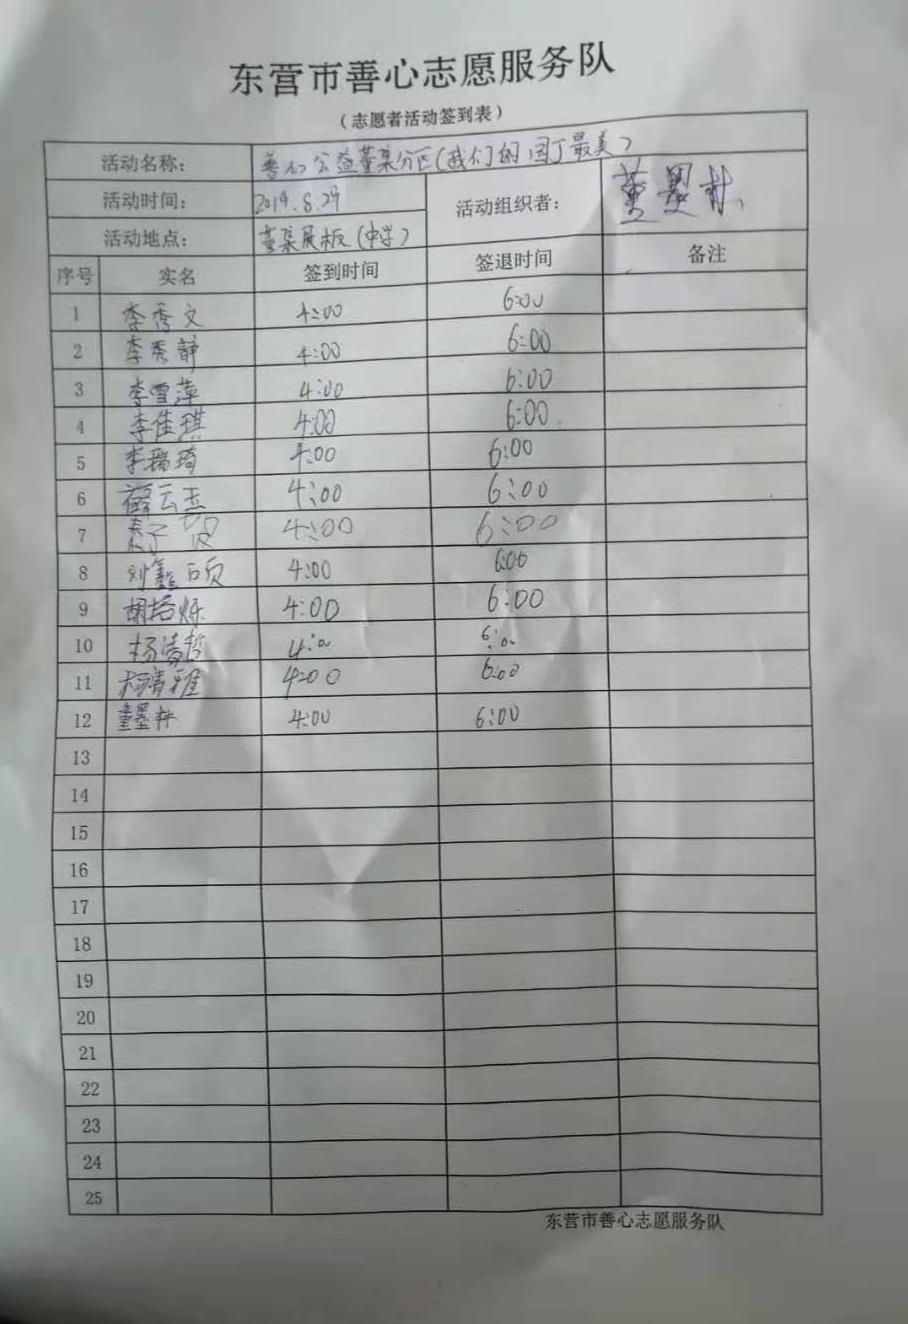 东营市善心志愿服务队
(志愿者活动签到表)
活动名称: 善心公益董集分区(我们的园丁最美)
活动时间: 2019.8.29 活动组织者: 董墨林
活动地点: 董集展板(中学)
序号 实名 签到时间 签退时间 备注
1 李秀文 4:00 6:00
2 李秀静 4:00 6:00
3 李雪萍 4:00 6:00
4 李佳琪 4:00 6:00
5 李瑞琦 4:00 6:00
6 薛云玉 4:00 6:00
7 4:00 6:00
8 刘鑫硕 4:00 6:00
9 4:00 6:00
10 杨清哲 4:00 6:00
11 杨清雅 4:00 6:00
12 董墨林 4:00 6:00
13
14
15
16
17
18
19
20
21
22
23
24
25
东营市善心志愿服务队